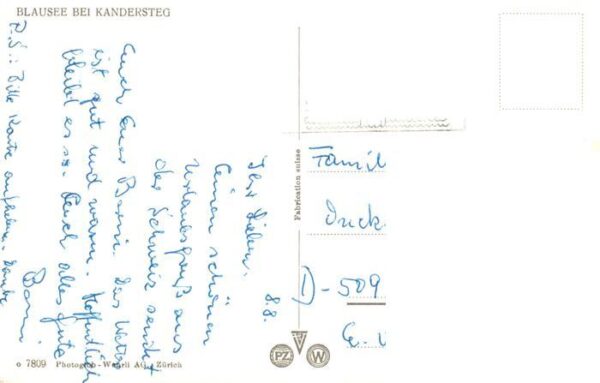 BLAUSEE BEI KANDERSTEG
8.8.
Ihr Lieben.
Einen schönen
Urlaubsgruß aus
der Schweiz sendet
Euch Euer Bonni. Das Wetter
ist gut und warm. Hoffentlich
bleibt es so. Euch alles gute
P.S.: Bitte Karte aufheben. Danke
Famil
D-509
Fabrication suisse
PZ
W
o 7809 Photogr.- Wehrli AG, Zürich